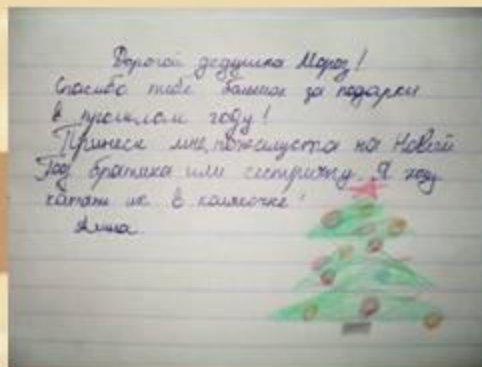 Дорогой дедушка Мороз!
Спасибо тебе большое за подарки
в прошлом году!
Принеси мне, пожалуйста на Новый
Год братика или сестричку. Я буду
катать их в колясочке!
Алина.